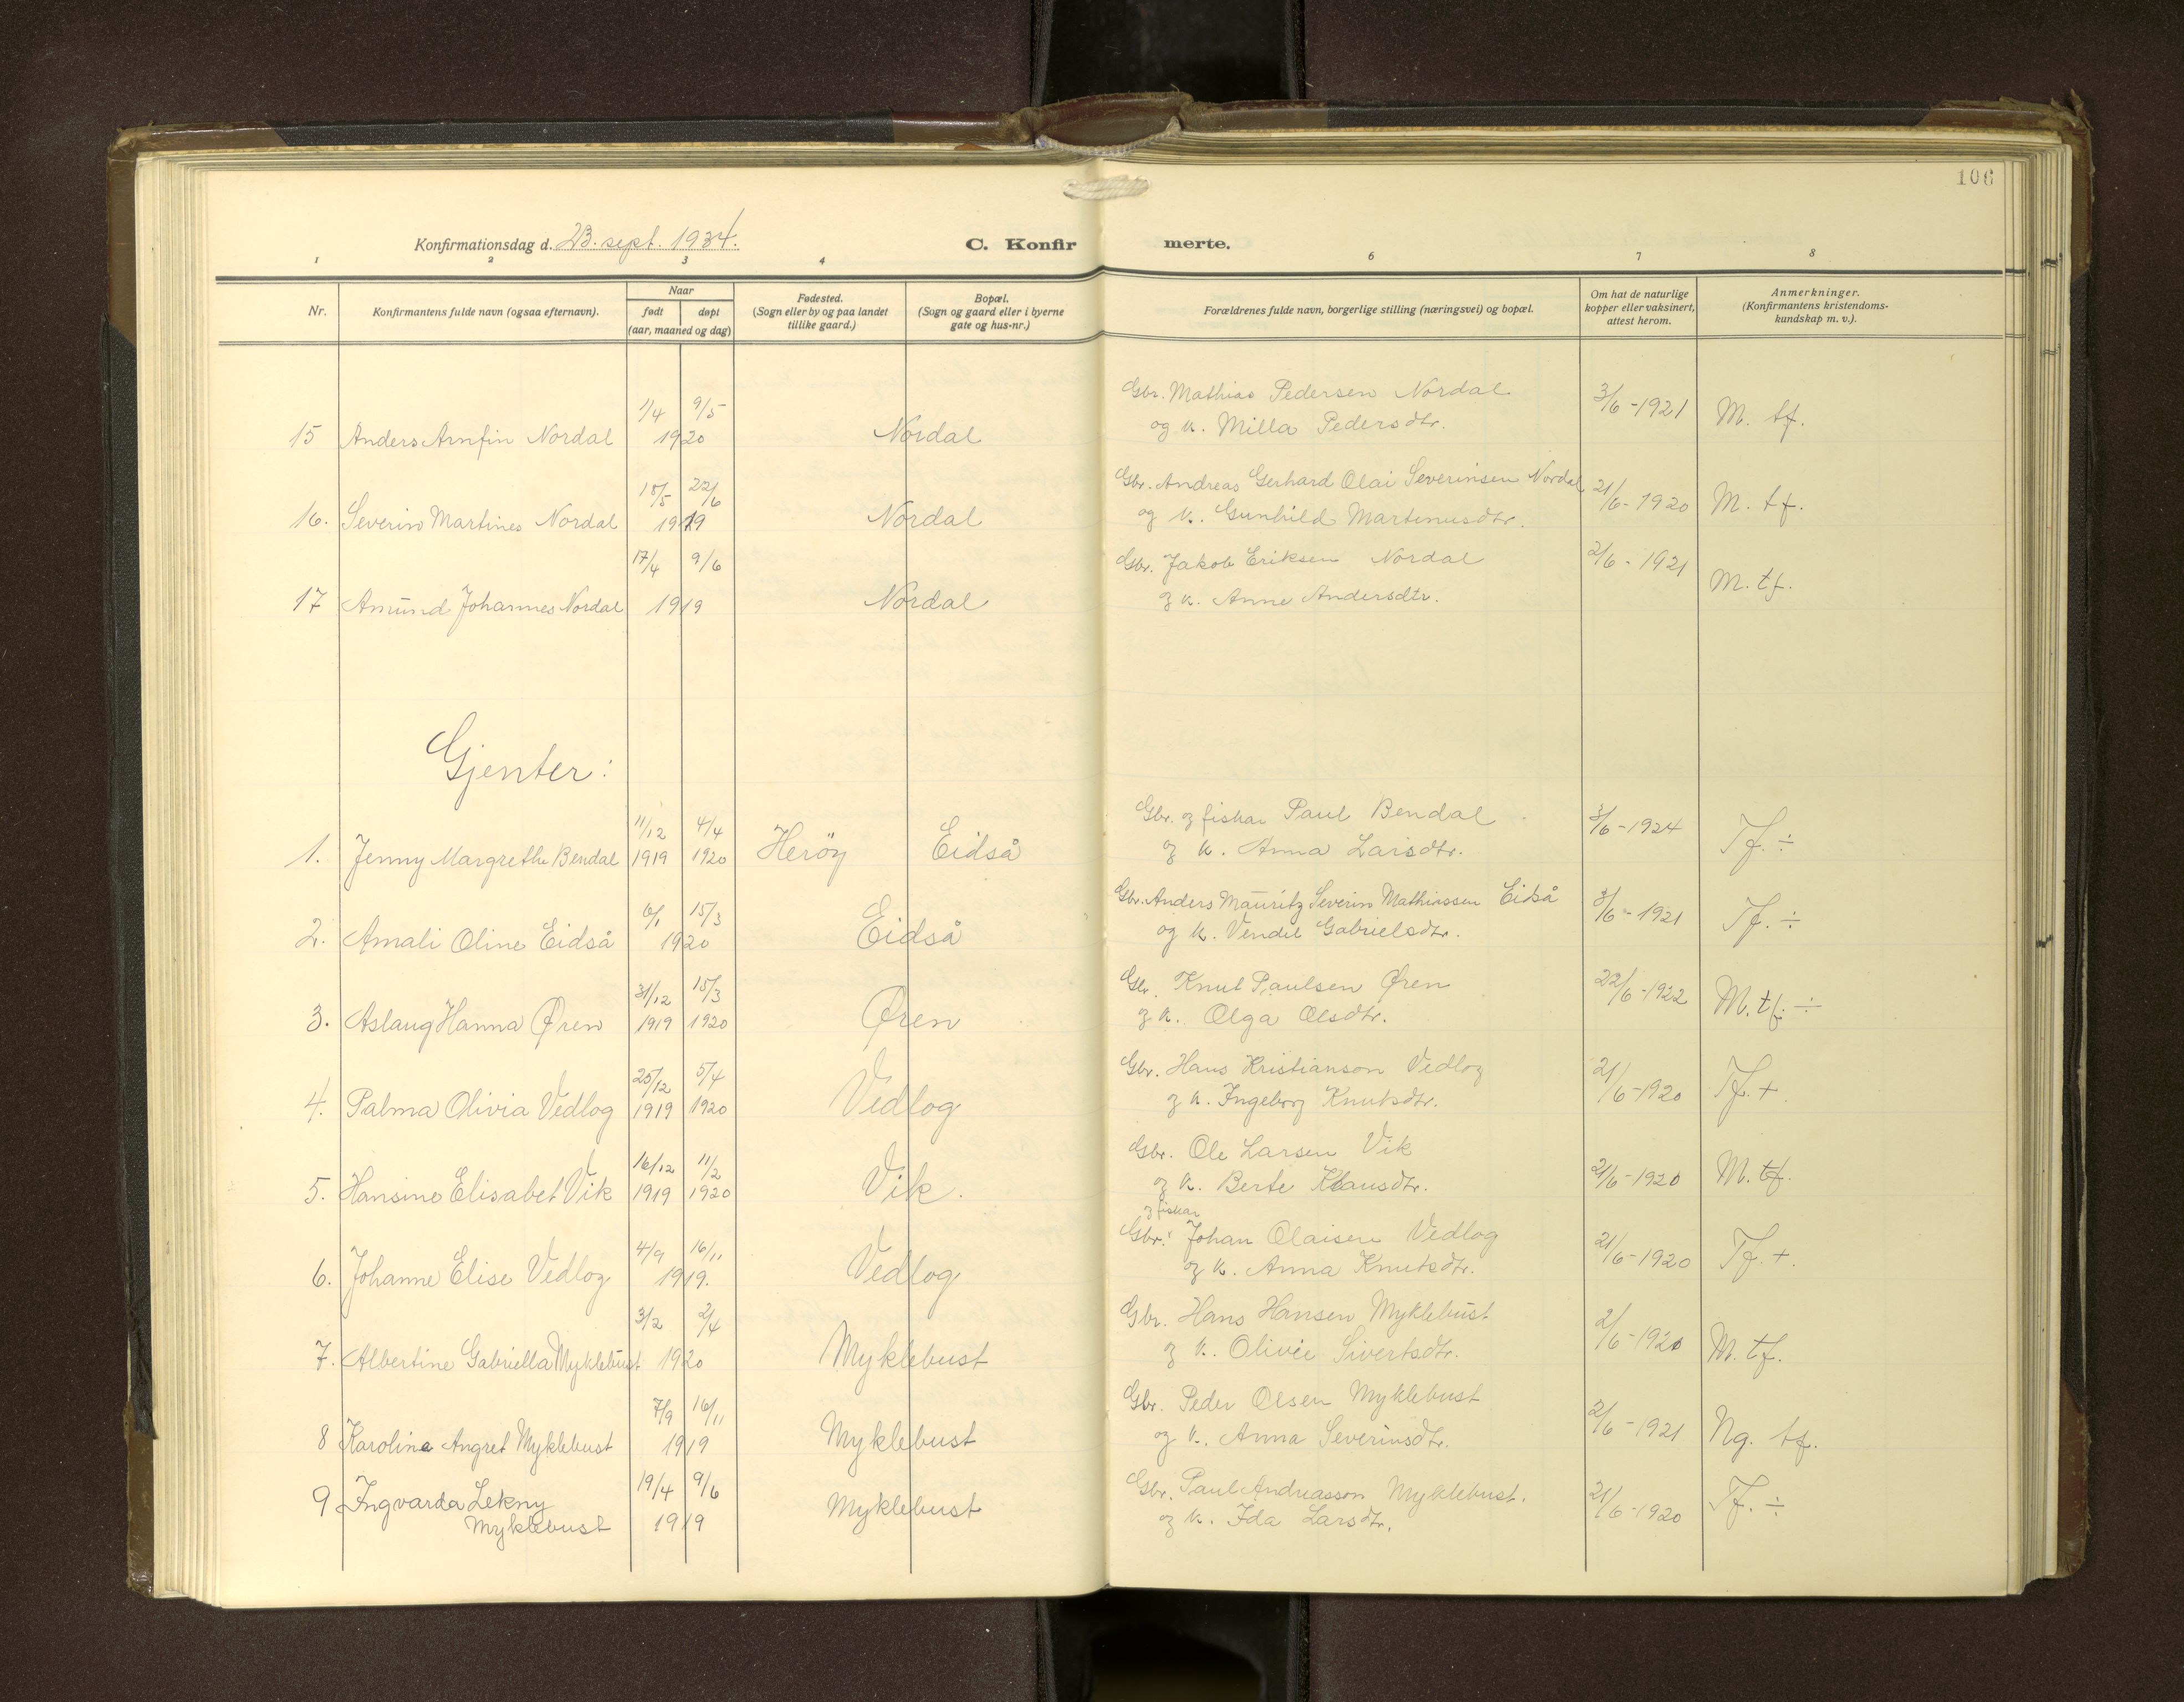 106
Konfirmationsdag d. 23. sept. 1934.
C. Konfirmerte.
1 2 3 4 6 7 8
Nr.
Konfirmantens fulde navn (ogsaa efternavn).
Naar
født døpt
(aar, maaned og dag)
Fødested.
(Sogn eller by og paa landet
tillike gaard.)
Bopæl.
(Sogn og gaard eller i byerne
gate og hus-nr.)
Forældrenes fulde navn, borgerlige stilling (næringsvei) og bopæl.
Om hat de naturlige
kopper eller vaksinert,
attest herom.
Anmerkninger.
(Konfirmantens kristendoms-
kundskap m. v.).
1/4 9/5 Gbr. Mathias Pedersen Nordal 3/6-1921
15 Anders Arnfin Nordal 1920 Nordal og k. Milla Pedersdtr. M. tf.
18/5 22/6 Gbr. Andreas Gerhard Olai Severinsen Nordal 21/6-1920
16. Severin Martines Nordal 1919 Nordal og k. Gunhild Martinusdtr. M. tf.
17/4 9/6 Gbr. Jakob Eriksen Nordal 2/6-1921
17 Amund Johannes Nordal 1919 Nordal og k. Anne Andersdtr. M. tf.
Gjenter:
11/12 4/4 Gbr. og fiskar Paul Bendal 3/6-1924
1. Jenny Margrethe Bendal 1919 1920 Heröy Eidså og k. Anna Larsdtr. Tf. ÷
6/1 15/3 Gbr. Anders Mauritz Severin Mathiassen Eidså 3/6-1921
2. Amali Oline Eidså 1920 Eidså og k. Vendil Gabrielsdtr. Tf. ÷
31/12 15/3 Gbr. Knut Paulsen Øren 22/6-1922
3. Aslaug Hanna Øren 1919 1920 Øren og k. Olga Olsdtr. M. tf. ÷
25/12 5/4 Gbr. Hans Kristianson Vedlog 21/6-1920
4. Palma Olivia Vedlog 1919 1920 Vedlog og k. Ingeborg Knutsdtr. Tf. +
16/12 11/2 Gbr. Ole Larsen Vik
5. Hansine Elisabet Vik 1919 1920 Vik. og k. Berte Klausdtr. 21/6-1920 M. tf.
og fiskar
4/9 16/11 Gbr. Johan Olaisen Vedlog 21/6-1920
6. Johanne Elise Vedlog 1919. Vedlog og k. Anna Knutsdtr. Tf. +.
3/2 2/4 Gbr. Hans Hansen Myklebust 2/6-1920
7. Albertine Gabriella Myklebust 1920 Myklebust og k. Olivie Sivertsdtr. M. tf.
7/9 16/11 Gbr. Peder Olsen Myklebust 2/6-1921
8 Karoline Angret Myklebust 1919 Myklebust og k. Anna Severinsdtr. Ng. tf.
9 Ingvarda Lekny 19/4 9/6 Myklebust Gbr. Paul Andreasson Myklebust. 21/6-1920 Tf. ÷
Myklebust 1919 og k. Ida Larsdtr.